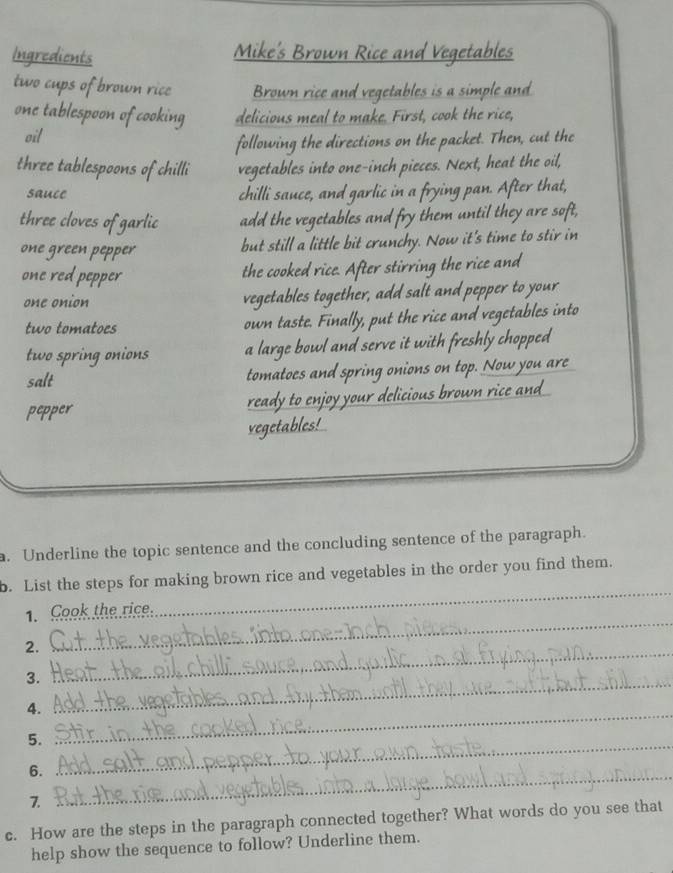 Ingredients
two cups of brown rice
one tablespoon of cooking
oil
three tablespoons of chilli
sauce
three cloves of garlic
one green pepper
one red pepper
one onion
two tomatoes
two spring onions
salt
pepper
Mike's Brown Rice and Vegetables
Brown rice and vegetables is a simple and
delicious meal to make. First, cook the rice,
following the directions on the packet. Then, cut the
vegetables into one-inch pieces. Next, heat the oil,
chilli sauce, and garlic in a frying pan. After that,
add the vegetables and fry them until they are soft,
but still a little bit crunchy. Now it's time to stir in
the cooked rice. After stirring the rice and
vegetables together, add salt and pepper to your
own taste. Finally, put the rice and vegetables into
a large bowl and serve it with freshly chopped
tomatoes and spring onions on top. Now you are
ready to enjoy your delicious brown rice and
vegetables!
a. Underline the topic sentence and the concluding sentence of the paragraph.
b. List the steps for making brown rice and vegetables in the order you find them.
1. Cook the rice.
2. Cut the vegetables into one-inch pieces.
3. Heat the oil, chilli sauce, and garlic in a frying pan.
4. Add the vegetables and fry them until they are soft, but still
5. Stir in the cooked rice.
6. Add salt and pepper to your own taste.
7. Put the rice and vegetables into a large bowl and spring onion
c. How are the steps in the paragraph connected together? What words do you see that
help show the sequence to follow? Underline them.